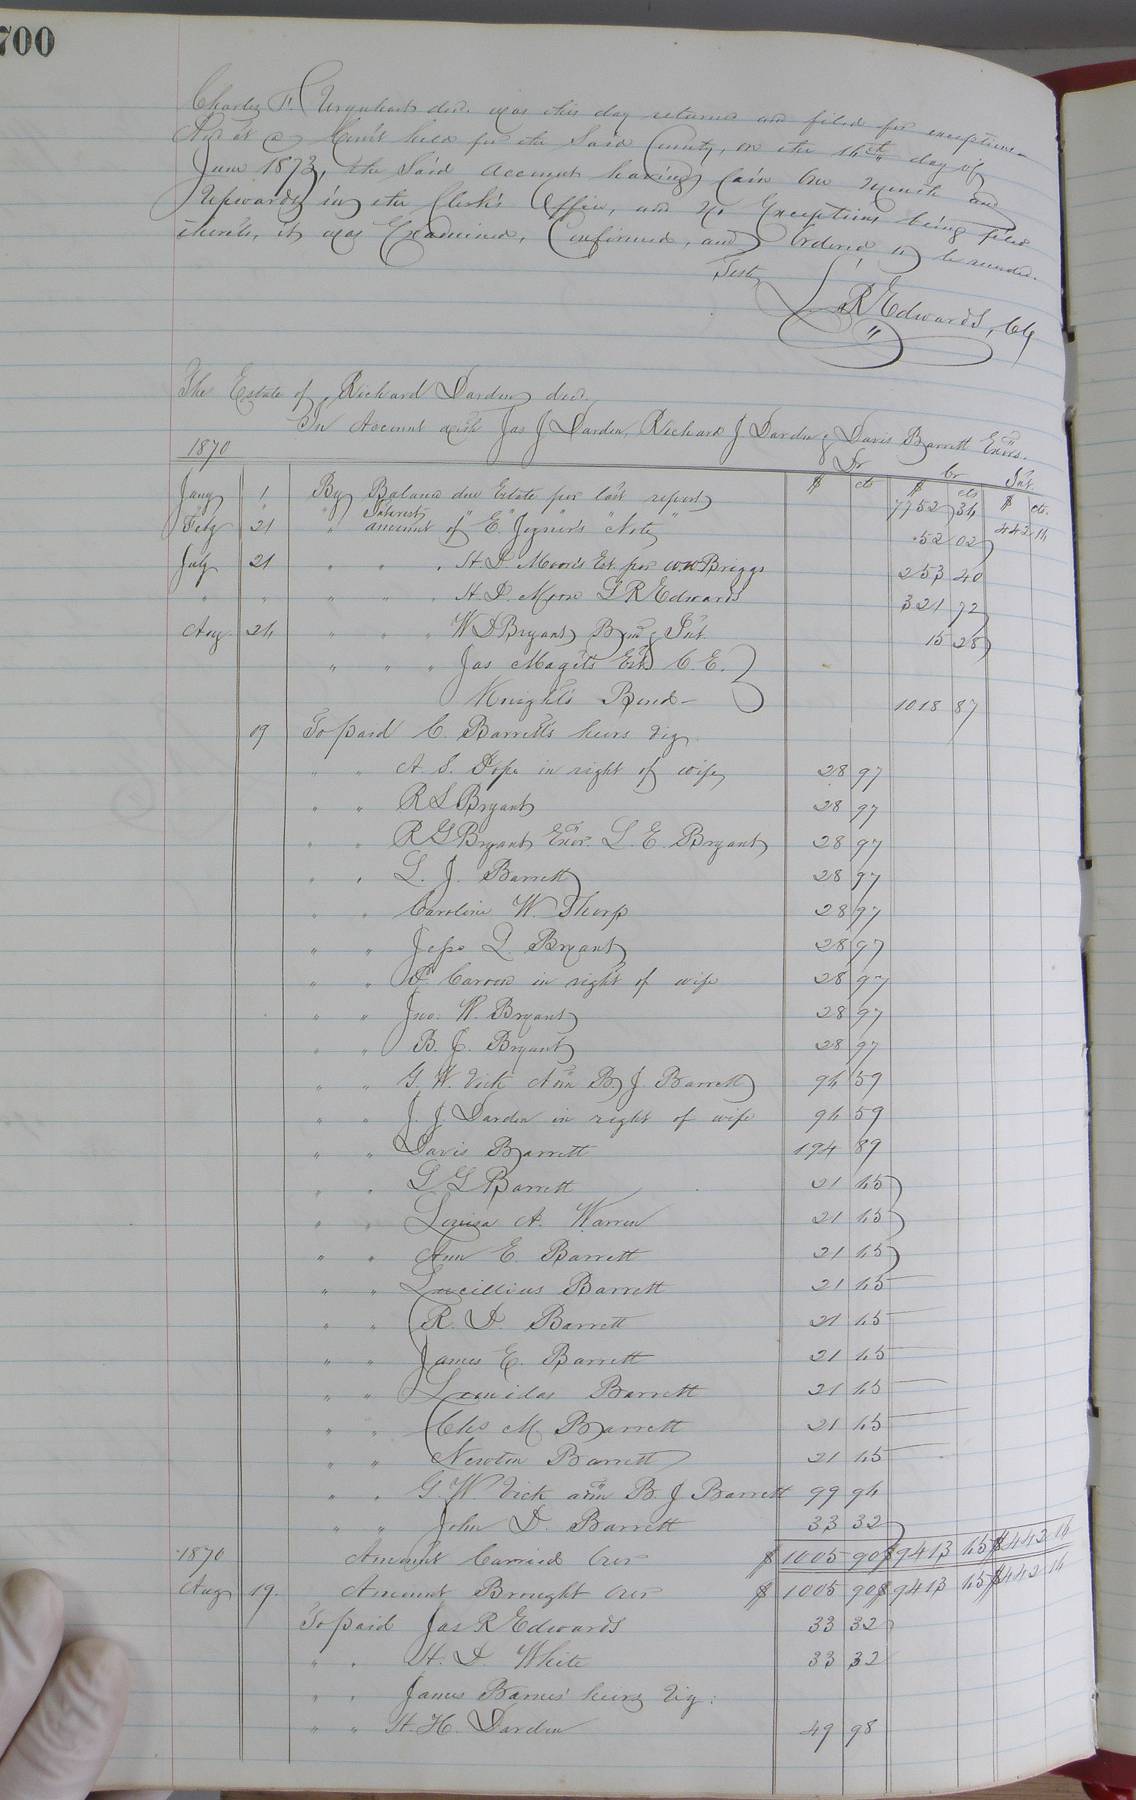 700
Charles F. Urquhart decd. was this day returned and filed for exceptions
And at a Court held for the Said County, on the 16th day of
June 1873, the Said Account having lain One Month and
Upwards in the Clerk's Office, and No Exceptions being filed
thereto, it was Examined, Confirmed, and Ordered to be recorded.
Teste
L R Edwards, Clk
The Estate of Richard Darden decd.
In Account with Jas J Darden, Richard J Darden & Davis Barrett Exors.
1870 Dr Cr Int.
$ cts $ cts $ cts.
Jany 1 By Balance due Estate per last report 7752 34 442 14
Feby 21 " Interest amount of E. Joyner's Note 52 02
July 21 " " " H. D. Moore's Ex per W.W Briggs 253 40
" " " " " H. D. Moore L R Edwards 321 72
Aug 24 " " " W D Bryant, & Int 15 28
" " " Jas Magets Exr C. E.
Knight's Bond 1018 87
09 To paid C. Barrett's heirs Viz
" " A. S. Pope in right of wife 28 97
" " R S Bryant 28 97
" " R G Bryant Exor. L. E. Bryant 28 97
" " L. J. Barrett 28 97
" " Caroline W. Thorp 28 97
" " Jesse Q Bryant 28 97
" " in right of wife 28 97
" " Jno. W. Bryant 28 97
" " B. J. Bryant 28 97
" " G. W. Vick Adm B. J. Barrett 94 59
" " J. J. Darden in right of wife 94 59
" " Davis Barrett 194 89
" " L G Barrett 21 45
" " Louisa A. Warren 21 45
" " Ann E. Barrett 21 45
" " Lucillius Barrett 21 45
" " R. D. Barrett 21 45
" " James E. Barrett 21 45
" " Leonidas Barrett 21 45
" " Chs M Barrett 21 45
" " Newton Barrett 21 45
" " G W Vick adm B. J Barrett 99 94
" " John D. Barrett 33 32
1870 Amount Carried Over $ 1005 90 $ 9413 45 $ 442 14
Aug 19. Amount Brought Over $ 1005 90 $ 9413 45 $ 442 14
To paid Jas R Edwards 33 32
" " H. D. White 33 32
" " James Barnes' heirs Viz:
" " H. H. Darden 49 98